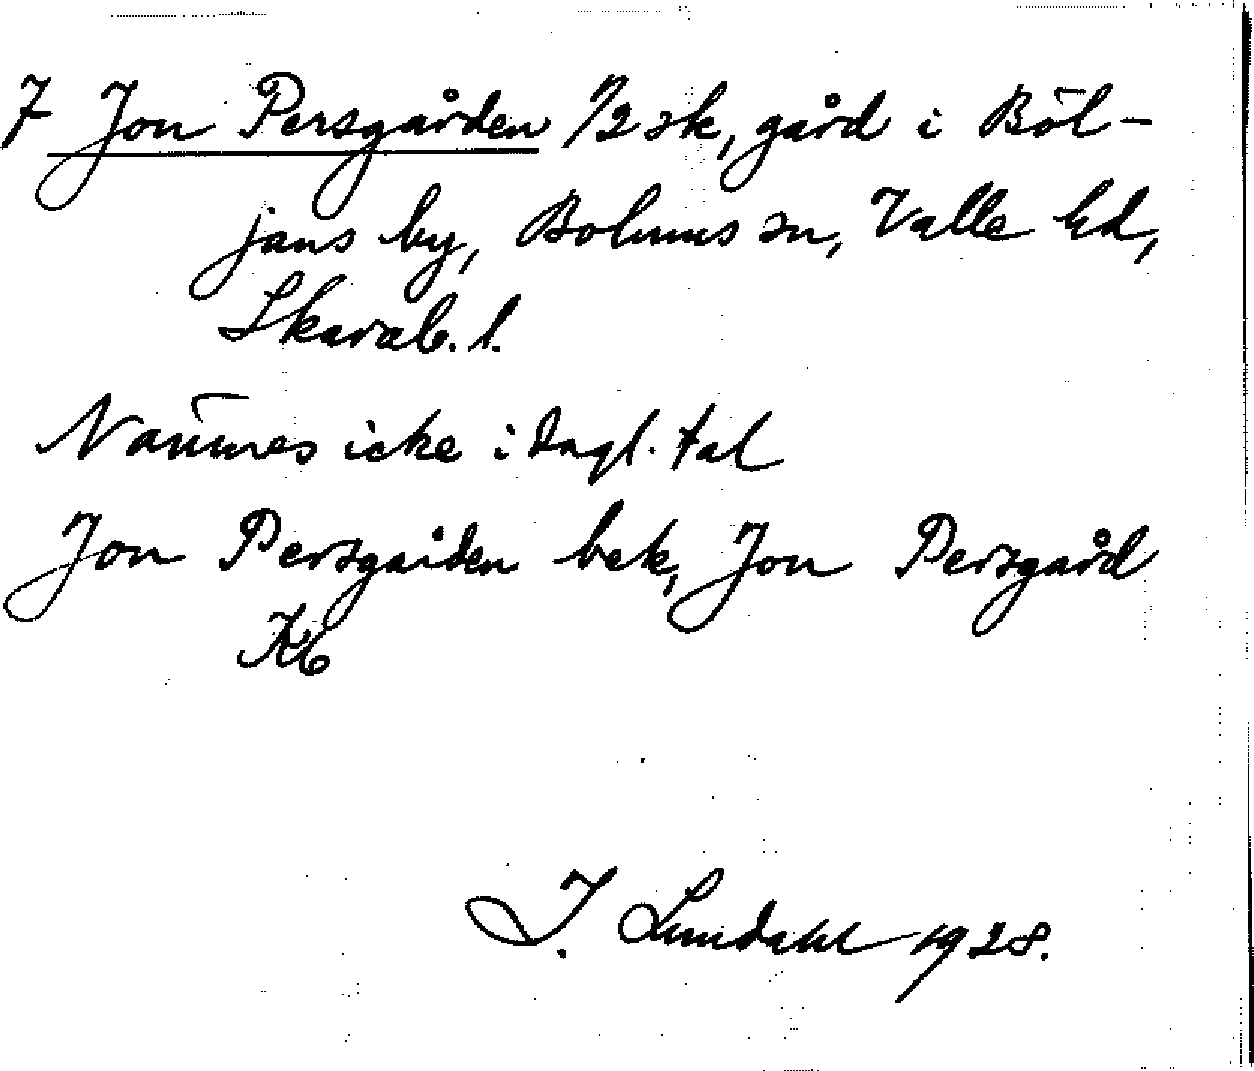 7 Jon Persgården 1/2 sk, gård i Böl-
jans by, Bolums sn, Valle hd,
Skarab. l.
Nämnes icke i dagl. tal
Jon Persgården bek, Jon Persgård
Kb
I. Lundahl 1928.